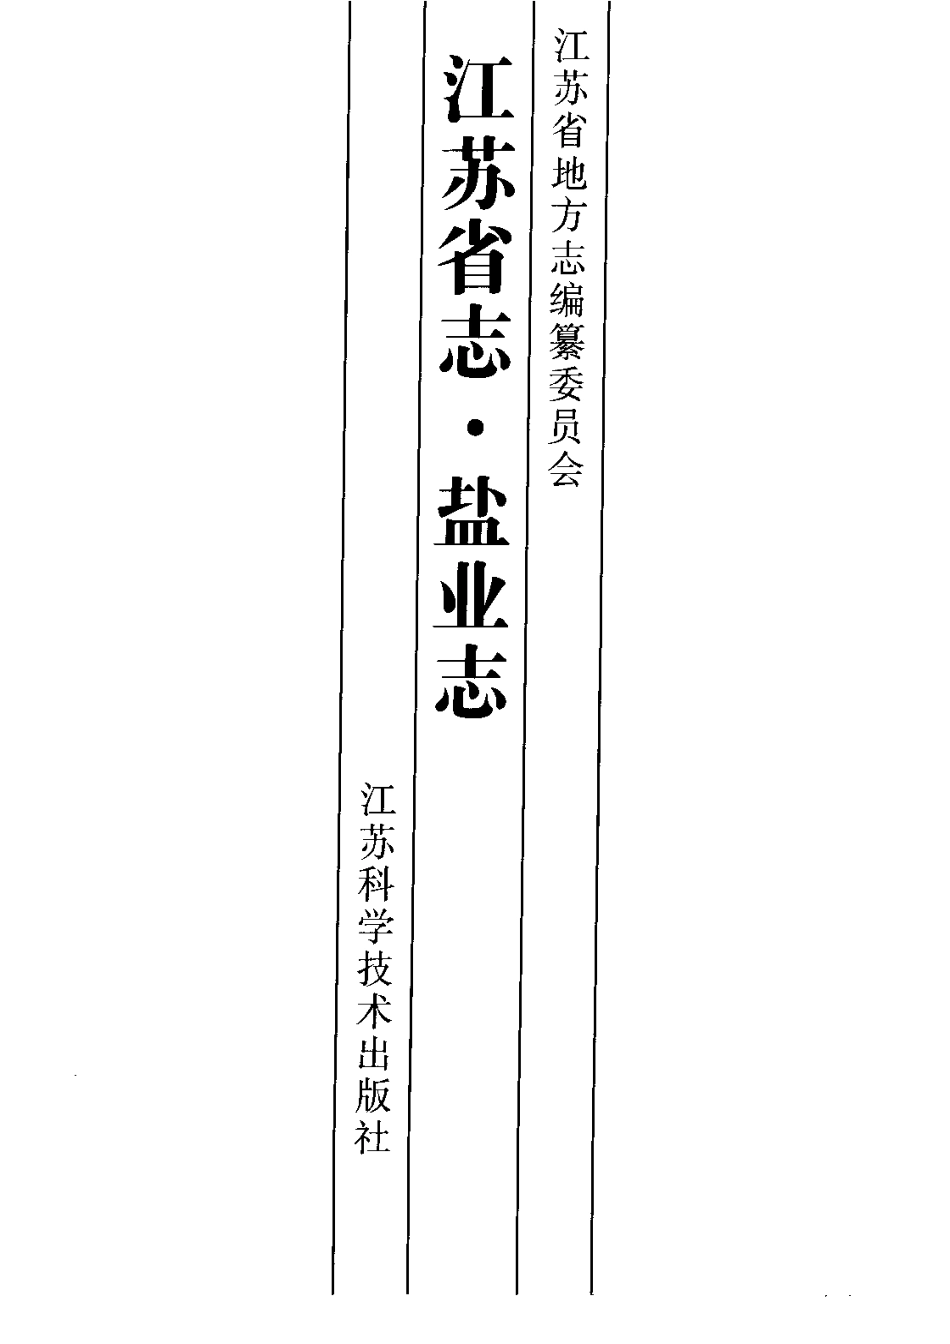 江苏省地方志编纂委员会
江苏省志·盐业志
江苏科学技术出版社